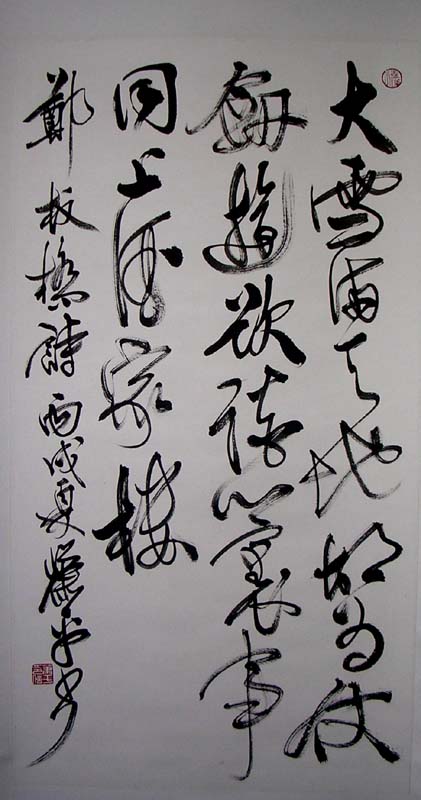 大雪滿天地胡为仗
劍遊欲談心裏事
同上酒家樓
鄭板橋詩丙戌夏平书